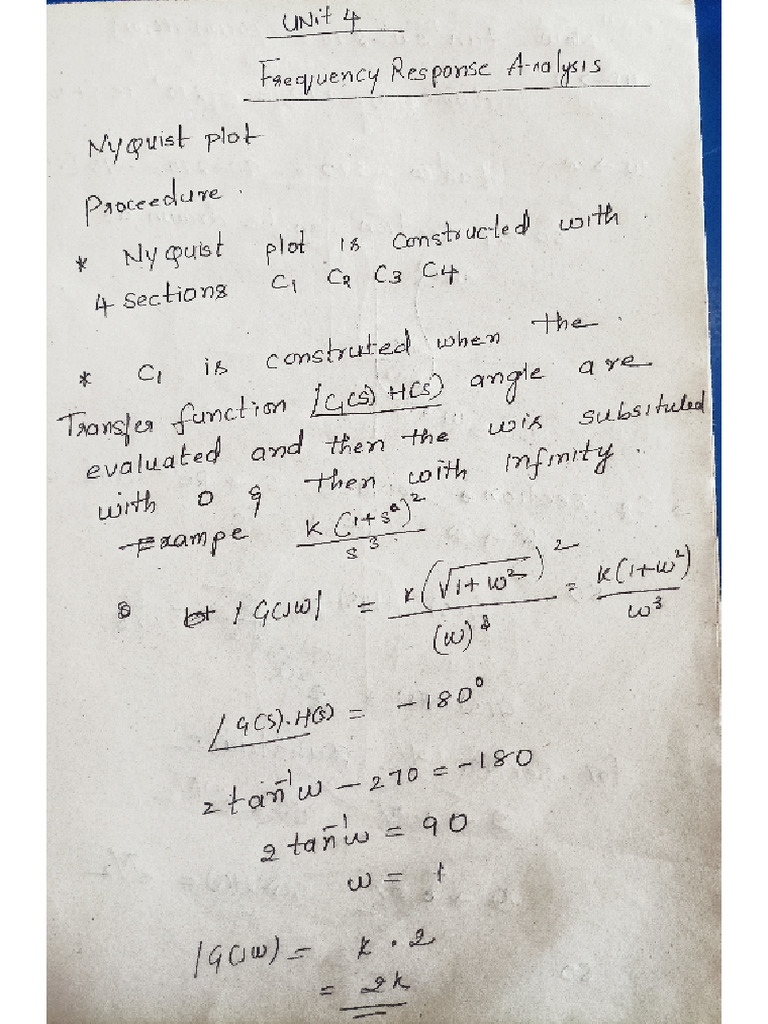 UNit 4
Frequency Response Analysis
Nyquist plot
Proceedure.
* Nyquist plot is constructed with
4 sections C1 C2 C3 C4
* C1 is construted when the
Transfer function ∠G(s) H(s) angle are
evaluated and then the w is subsituted
with 0 & then with infinity.
Exampe K(1+s)^2 / s^3
|G(jw)| = K(√1+w^2)^2 / (w)^3 = K(1+w^2) / w^3
∠G(s).H(s) = -180°
2 tan^-1 w - 270 = -180
2 tan^-1 w = 90
w = 1
|G(jw) = K . 2
= 2K